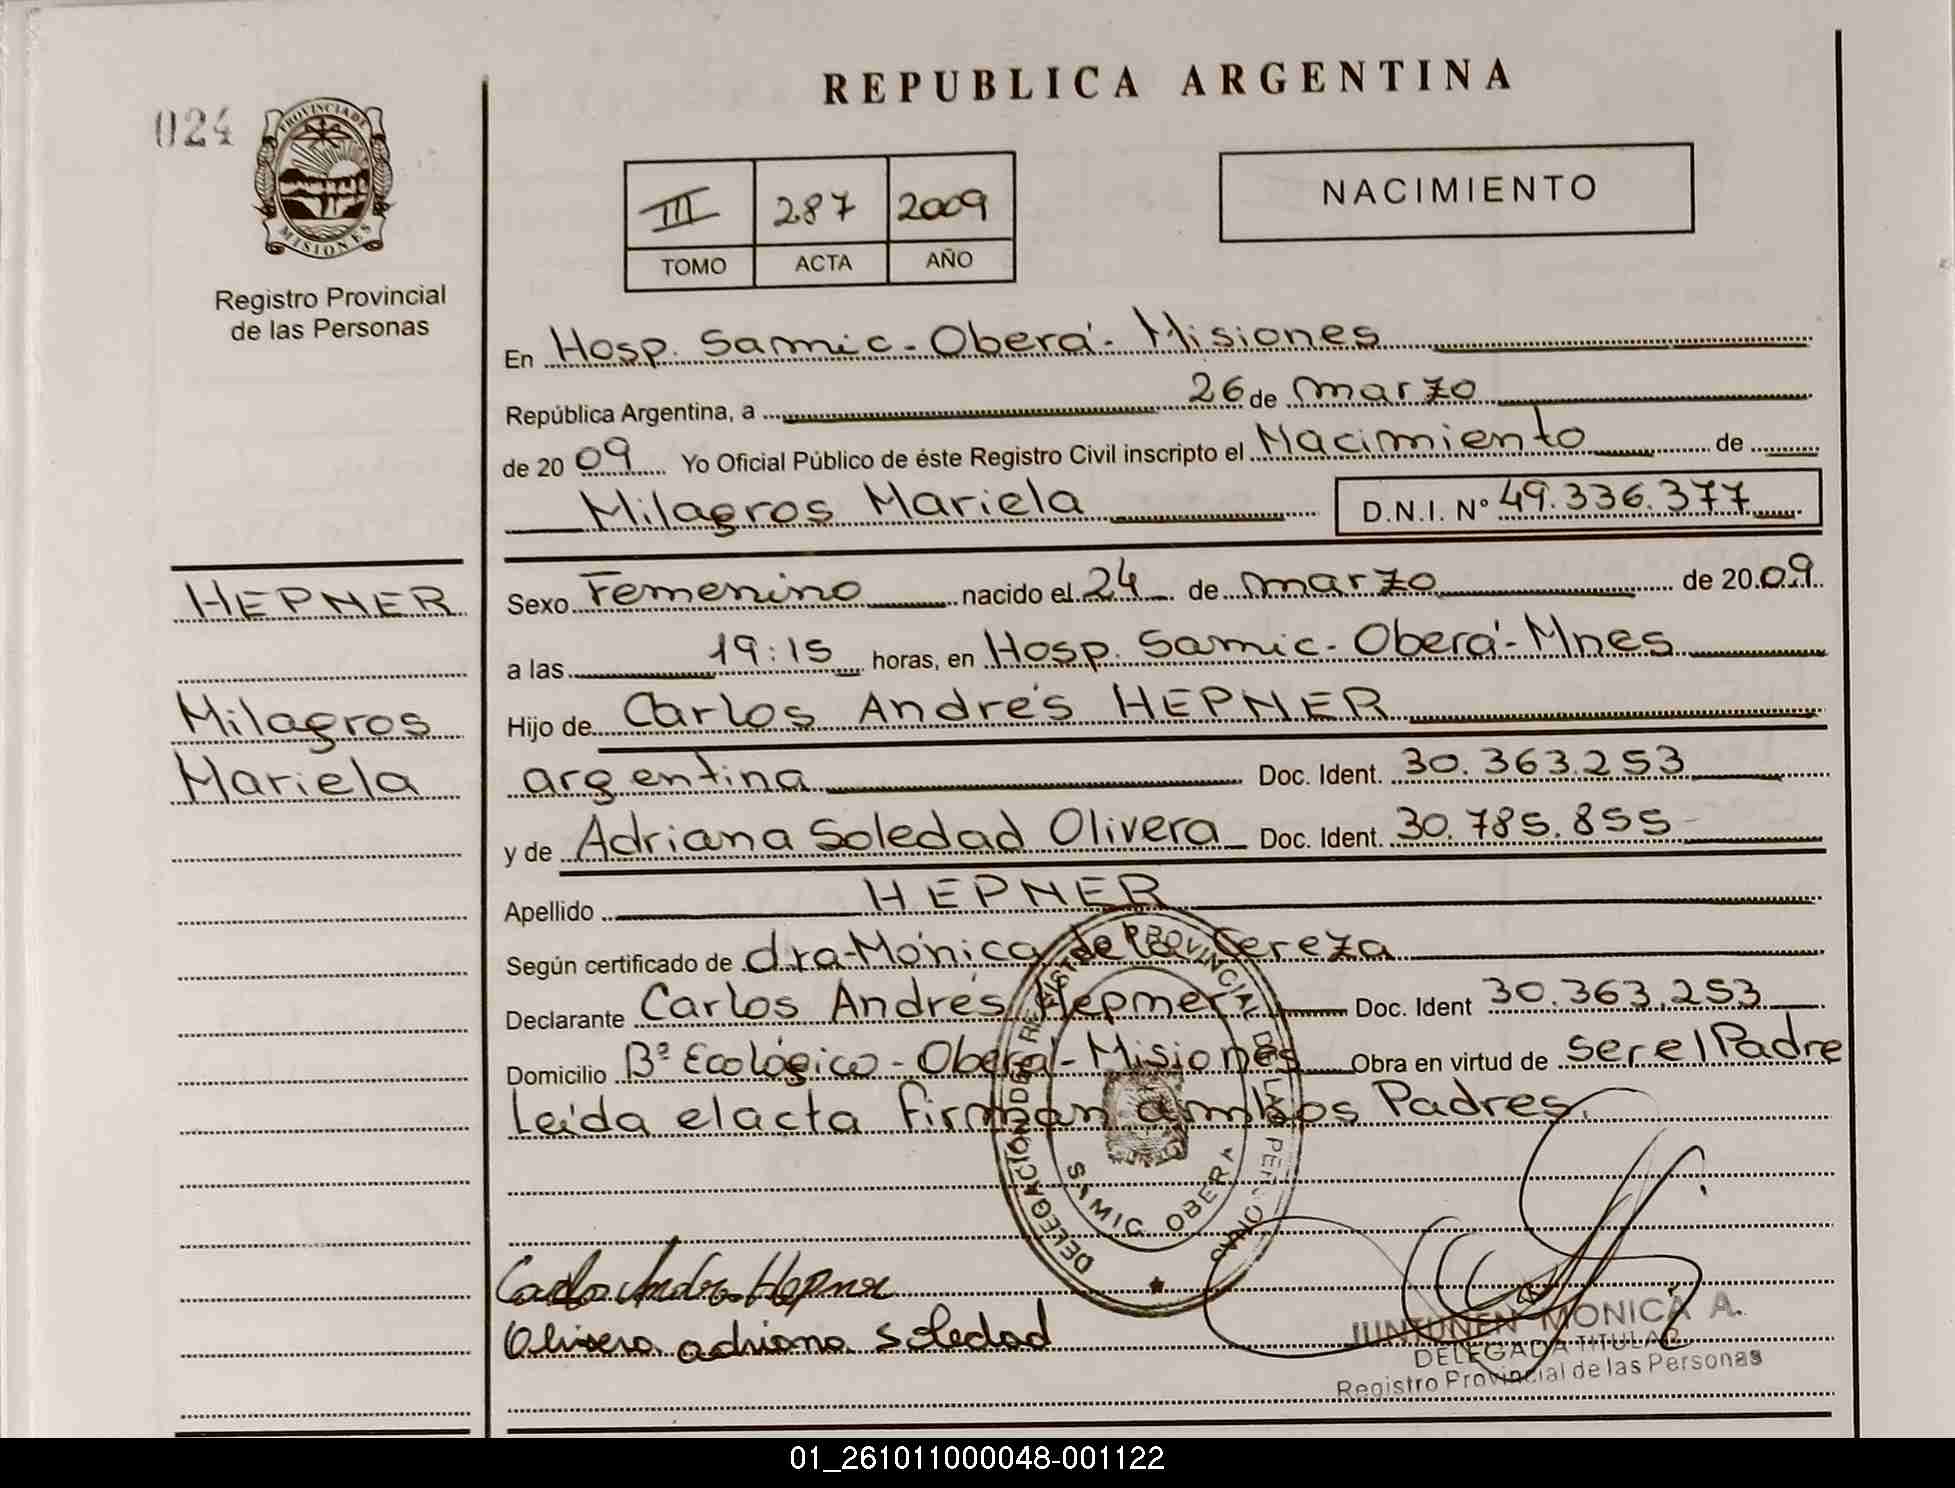 REPUBLICA ARGENTINA
024
PROVINCIA DE
MISIONES
Registro Provincial
de las Personas
III 287 2009
TOMO ACTA AÑO
NACIMIENTO
En Hosp. Samic - Oberá - Misiones
República Argentina, a 26 de marzo
de 20 09 Yo Oficial Público de éste Registro Civil inscripto el Nacimiento de
Milagros Mariela D.N.I. Nº 49.336.377
HEPNER
Milagros
Mariela
Sexo Femenino nacido el 24 de marzo de 20 09
a las 19:15 horas, en Hosp. Samic - Oberá - Mnes
Hijo de Carlos Andrés HEPNER
argentina Doc. Ident. 30.363.253
y de Adriana Soledad Olivera Doc. Ident. 30.785.855
Apellido HEPNER
Según certificado de dra Mónica de la Cereza
Declarante Carlos Andrés Hepner Doc. Ident 30.363.253
Domicilio Bº Ecológico - Oberá - Misiones Obra en virtud de ser el Padre
Leída el acta firman ambos Padres.
DELEGACION DE REGISTRO PROVINCIAL DE LAS PERSONAS
SAMIC OBERA
Carlos Andres Hepner
Olivera adriana Soledad
JUNTUNEN MONICA A.
DELEGADA TITULAR
Registro Provincial de las Personas
01_261011000048-001122